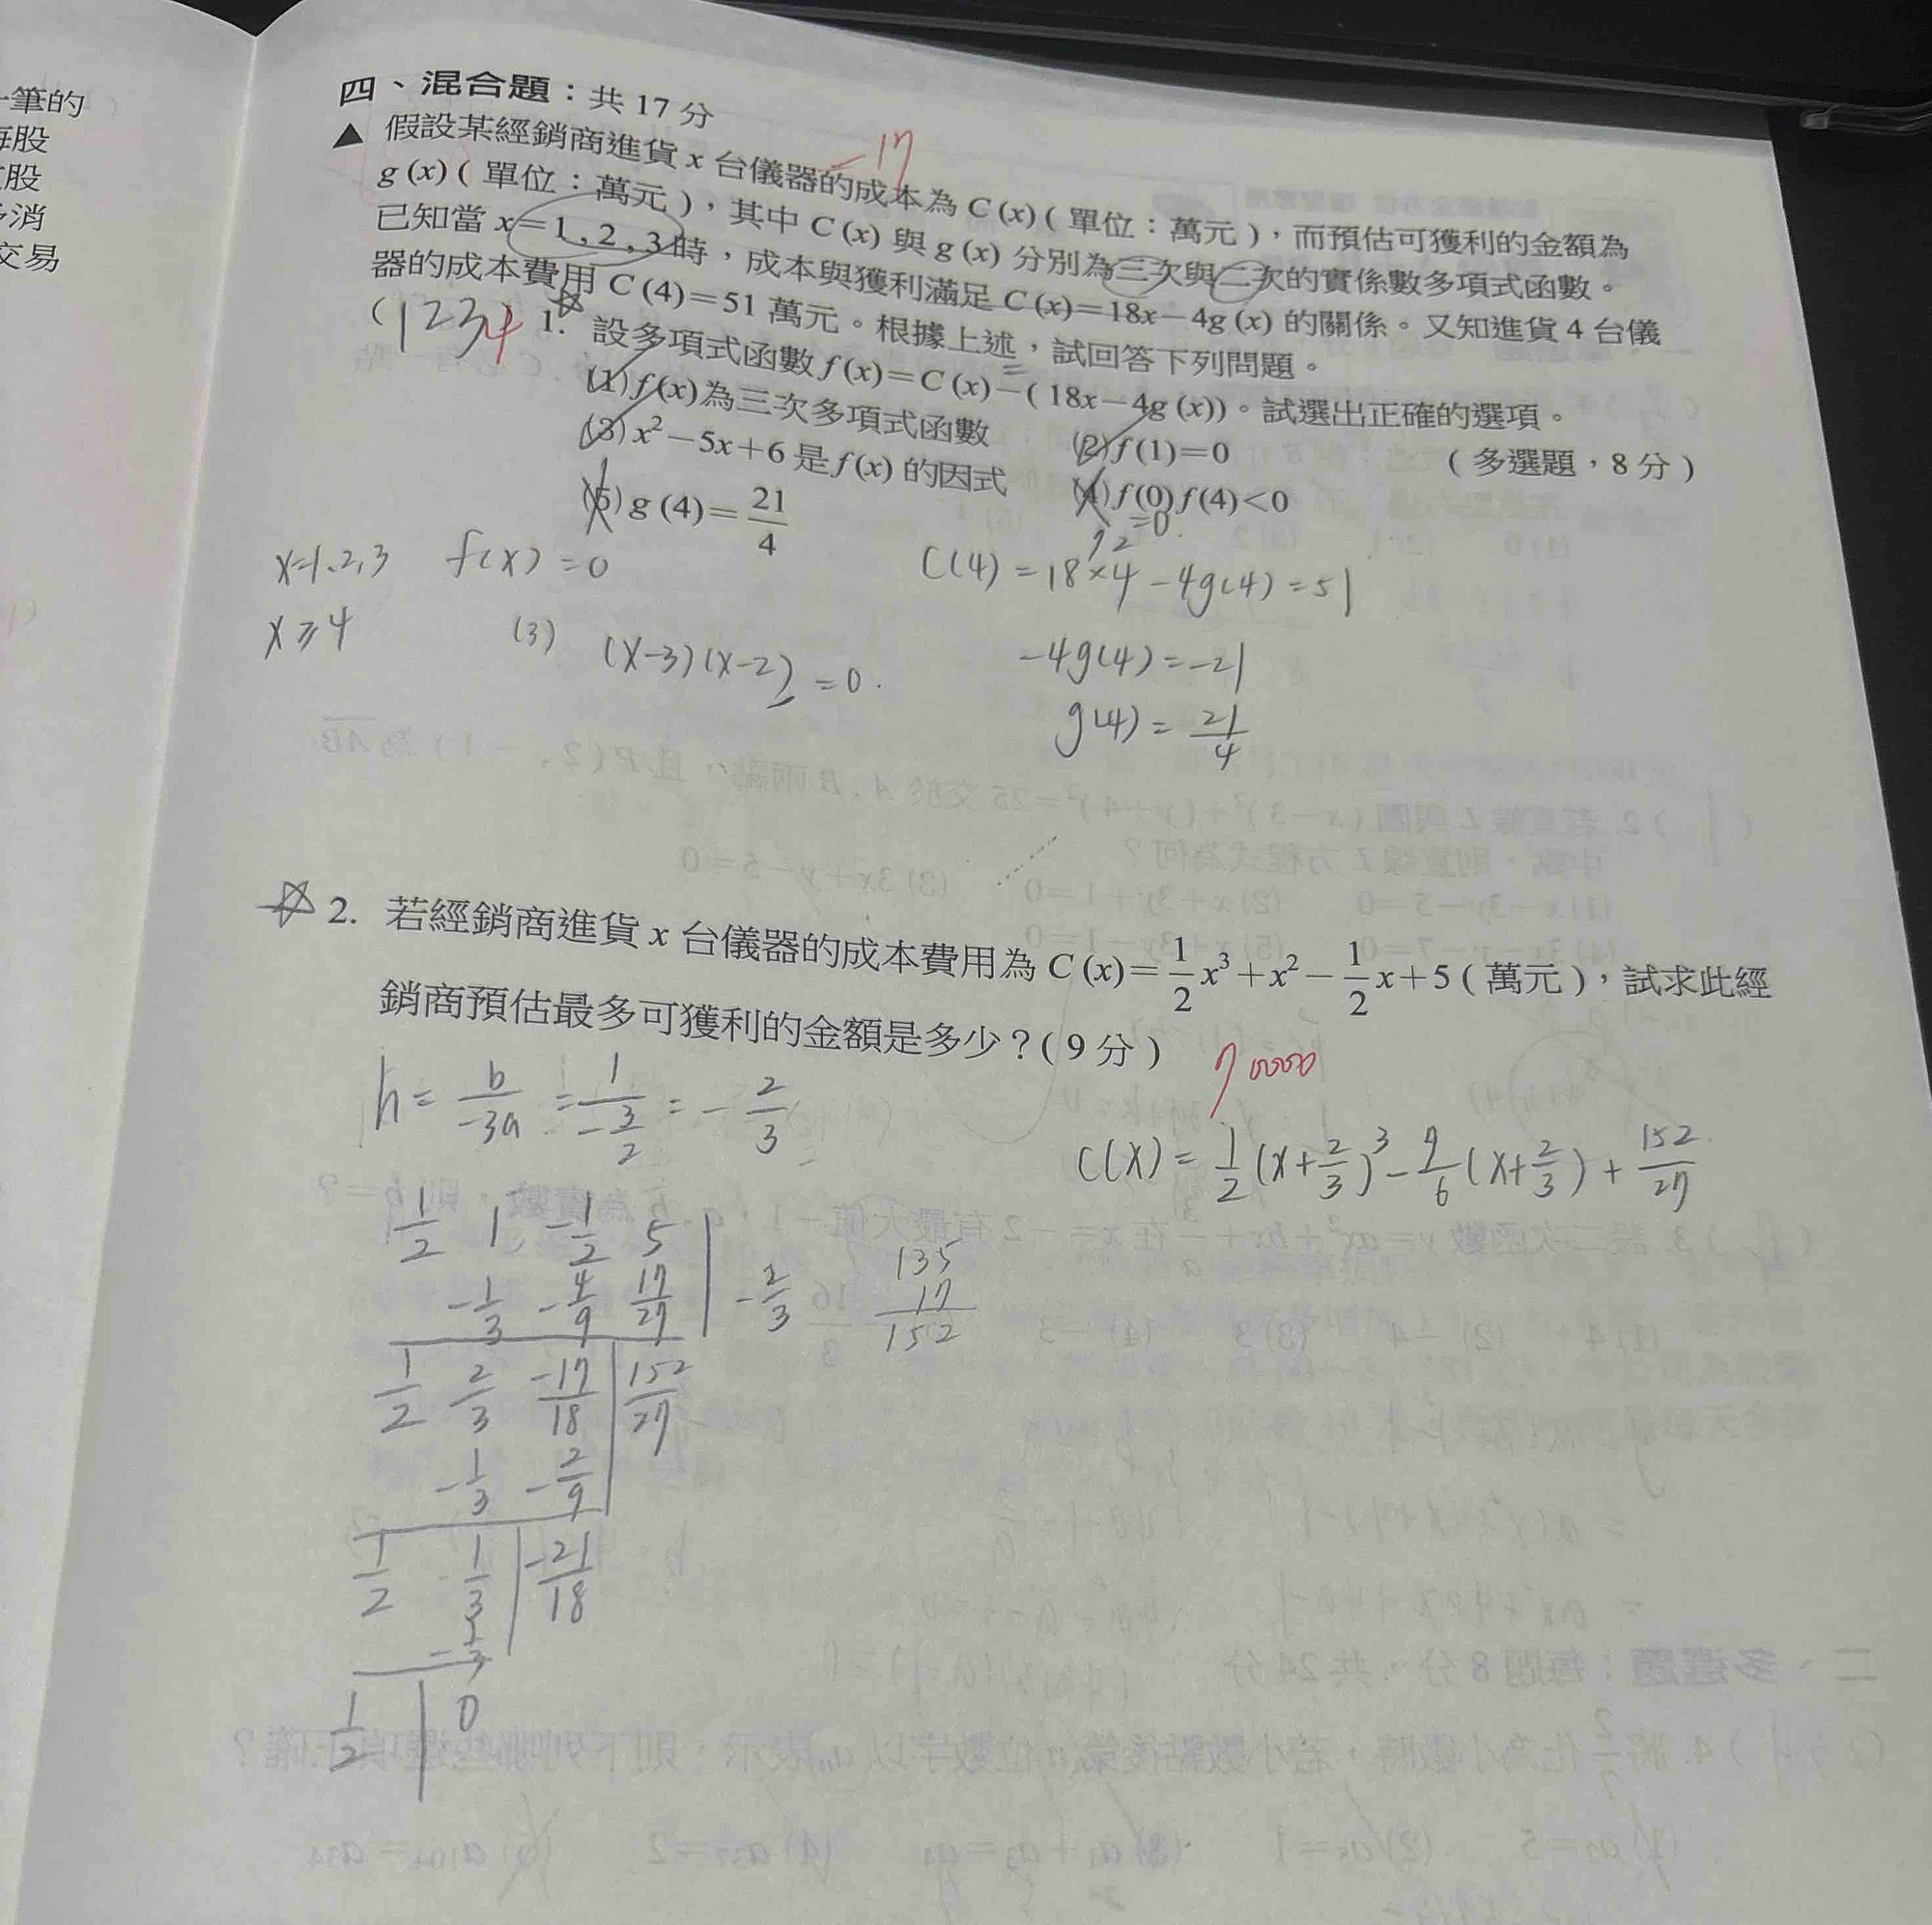 一筆的
每股
股
消
交易
四、混合題：共 17 分
▲ 假設某經銷商進貨 x 台儀器的成本為 C (x) ( 單位：萬元 )，而預估可獲利的金額為
-17
g (x) ( 單位：萬元 )，其中 C (x) 與 g (x) 分別為三次與二次的實係數多項式函數。
已知當 x＝1 , 2 , 3 時，成本與獲利滿足 C (x)＝18x－4g (x) 的關係。又知進貨 4 台儀
器的成本費用 C (4)＝51 萬元。根據上述，試回答下列問題。
(1234) 1. 設多項式函數 f (x)＝C (x)－( 18x－4g (x))。試選出正確的選項。
( 多選題，8 分 )
(1) f (x) 為三次多項式函數 (2) f (1)＝0
(3) x²－5x＋6 是 f (x) 的因式 (4) f (0) f (4)<0
(5) g (4)＝21/4 =0
x=1.2,3 f(x)=0 C(4)=18×4-4g(4)=51
72
x≥4 (3) (x-3)(x-2)=0. -4g(4)=-21
g(4)=21/4
☆ 2. 若經銷商進貨 x 台儀器的成本費用為 C (x)＝1/2x³＋x²－1/2x＋5 ( 萬元 )，試求此經
銷商預估最多可獲利的金額是多少？( 9 分 )
70000
h= b/-3a = 1/-3/2 = -2/3
C(x)= 1/2(x+2/3)³-7/6(x+2/3)+152/27
1/2 1 -1/2 5
-1/3 -4/9 17/27 | -2/3
135
17
152
1/2 2/3 -17/18 152/27
-1/3 -2/9
1/2 1/3 -21/18
1/2 0